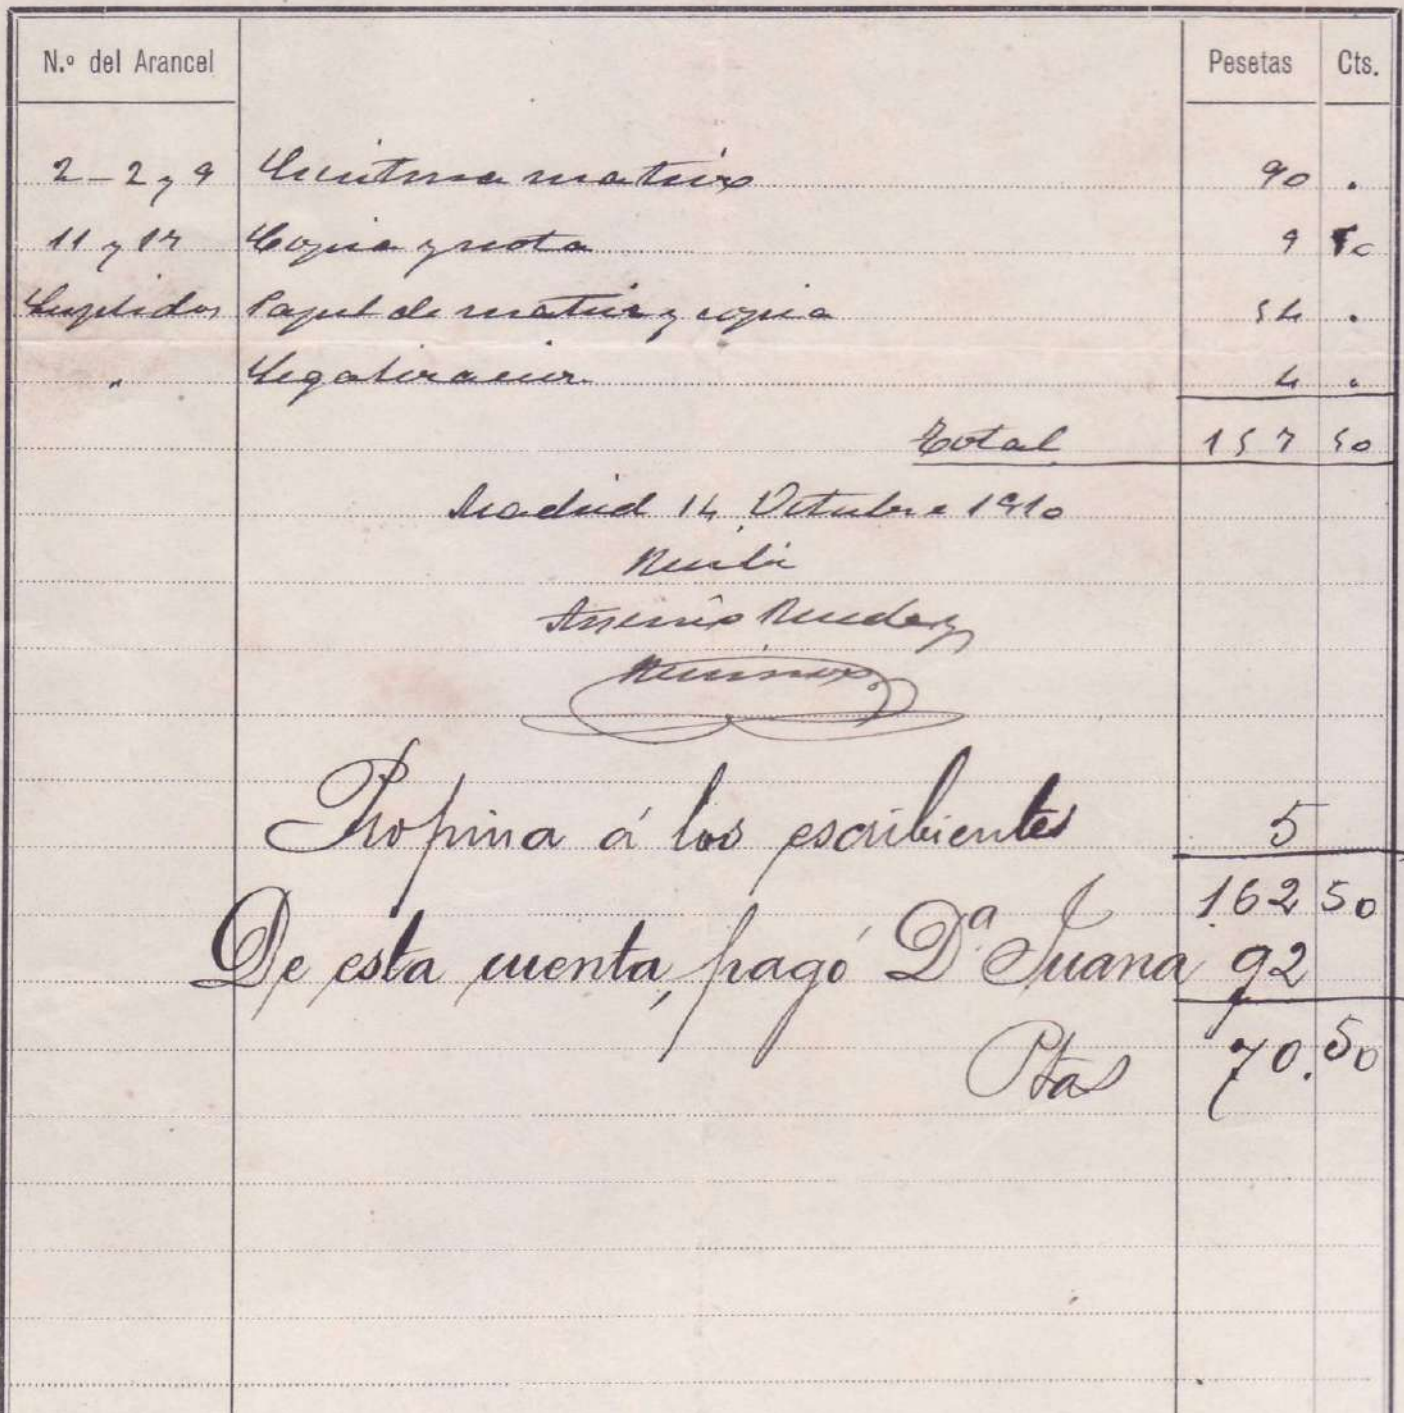 N.º del Arancel Pesetas Cts.
2 - 2 y 9 Escritura matriz 90 .
11 y 17 Copia y nota 9 50
Suplidos Papel de matriz y copia 54 .
" Legalizacion 4 .
Total 157 50
Madrid 14 Octubre 1910
Recibi
Propina á los escribientes 5
162 50
De esta cuenta, pagó D.ª Juana 92
Ptas 70.50